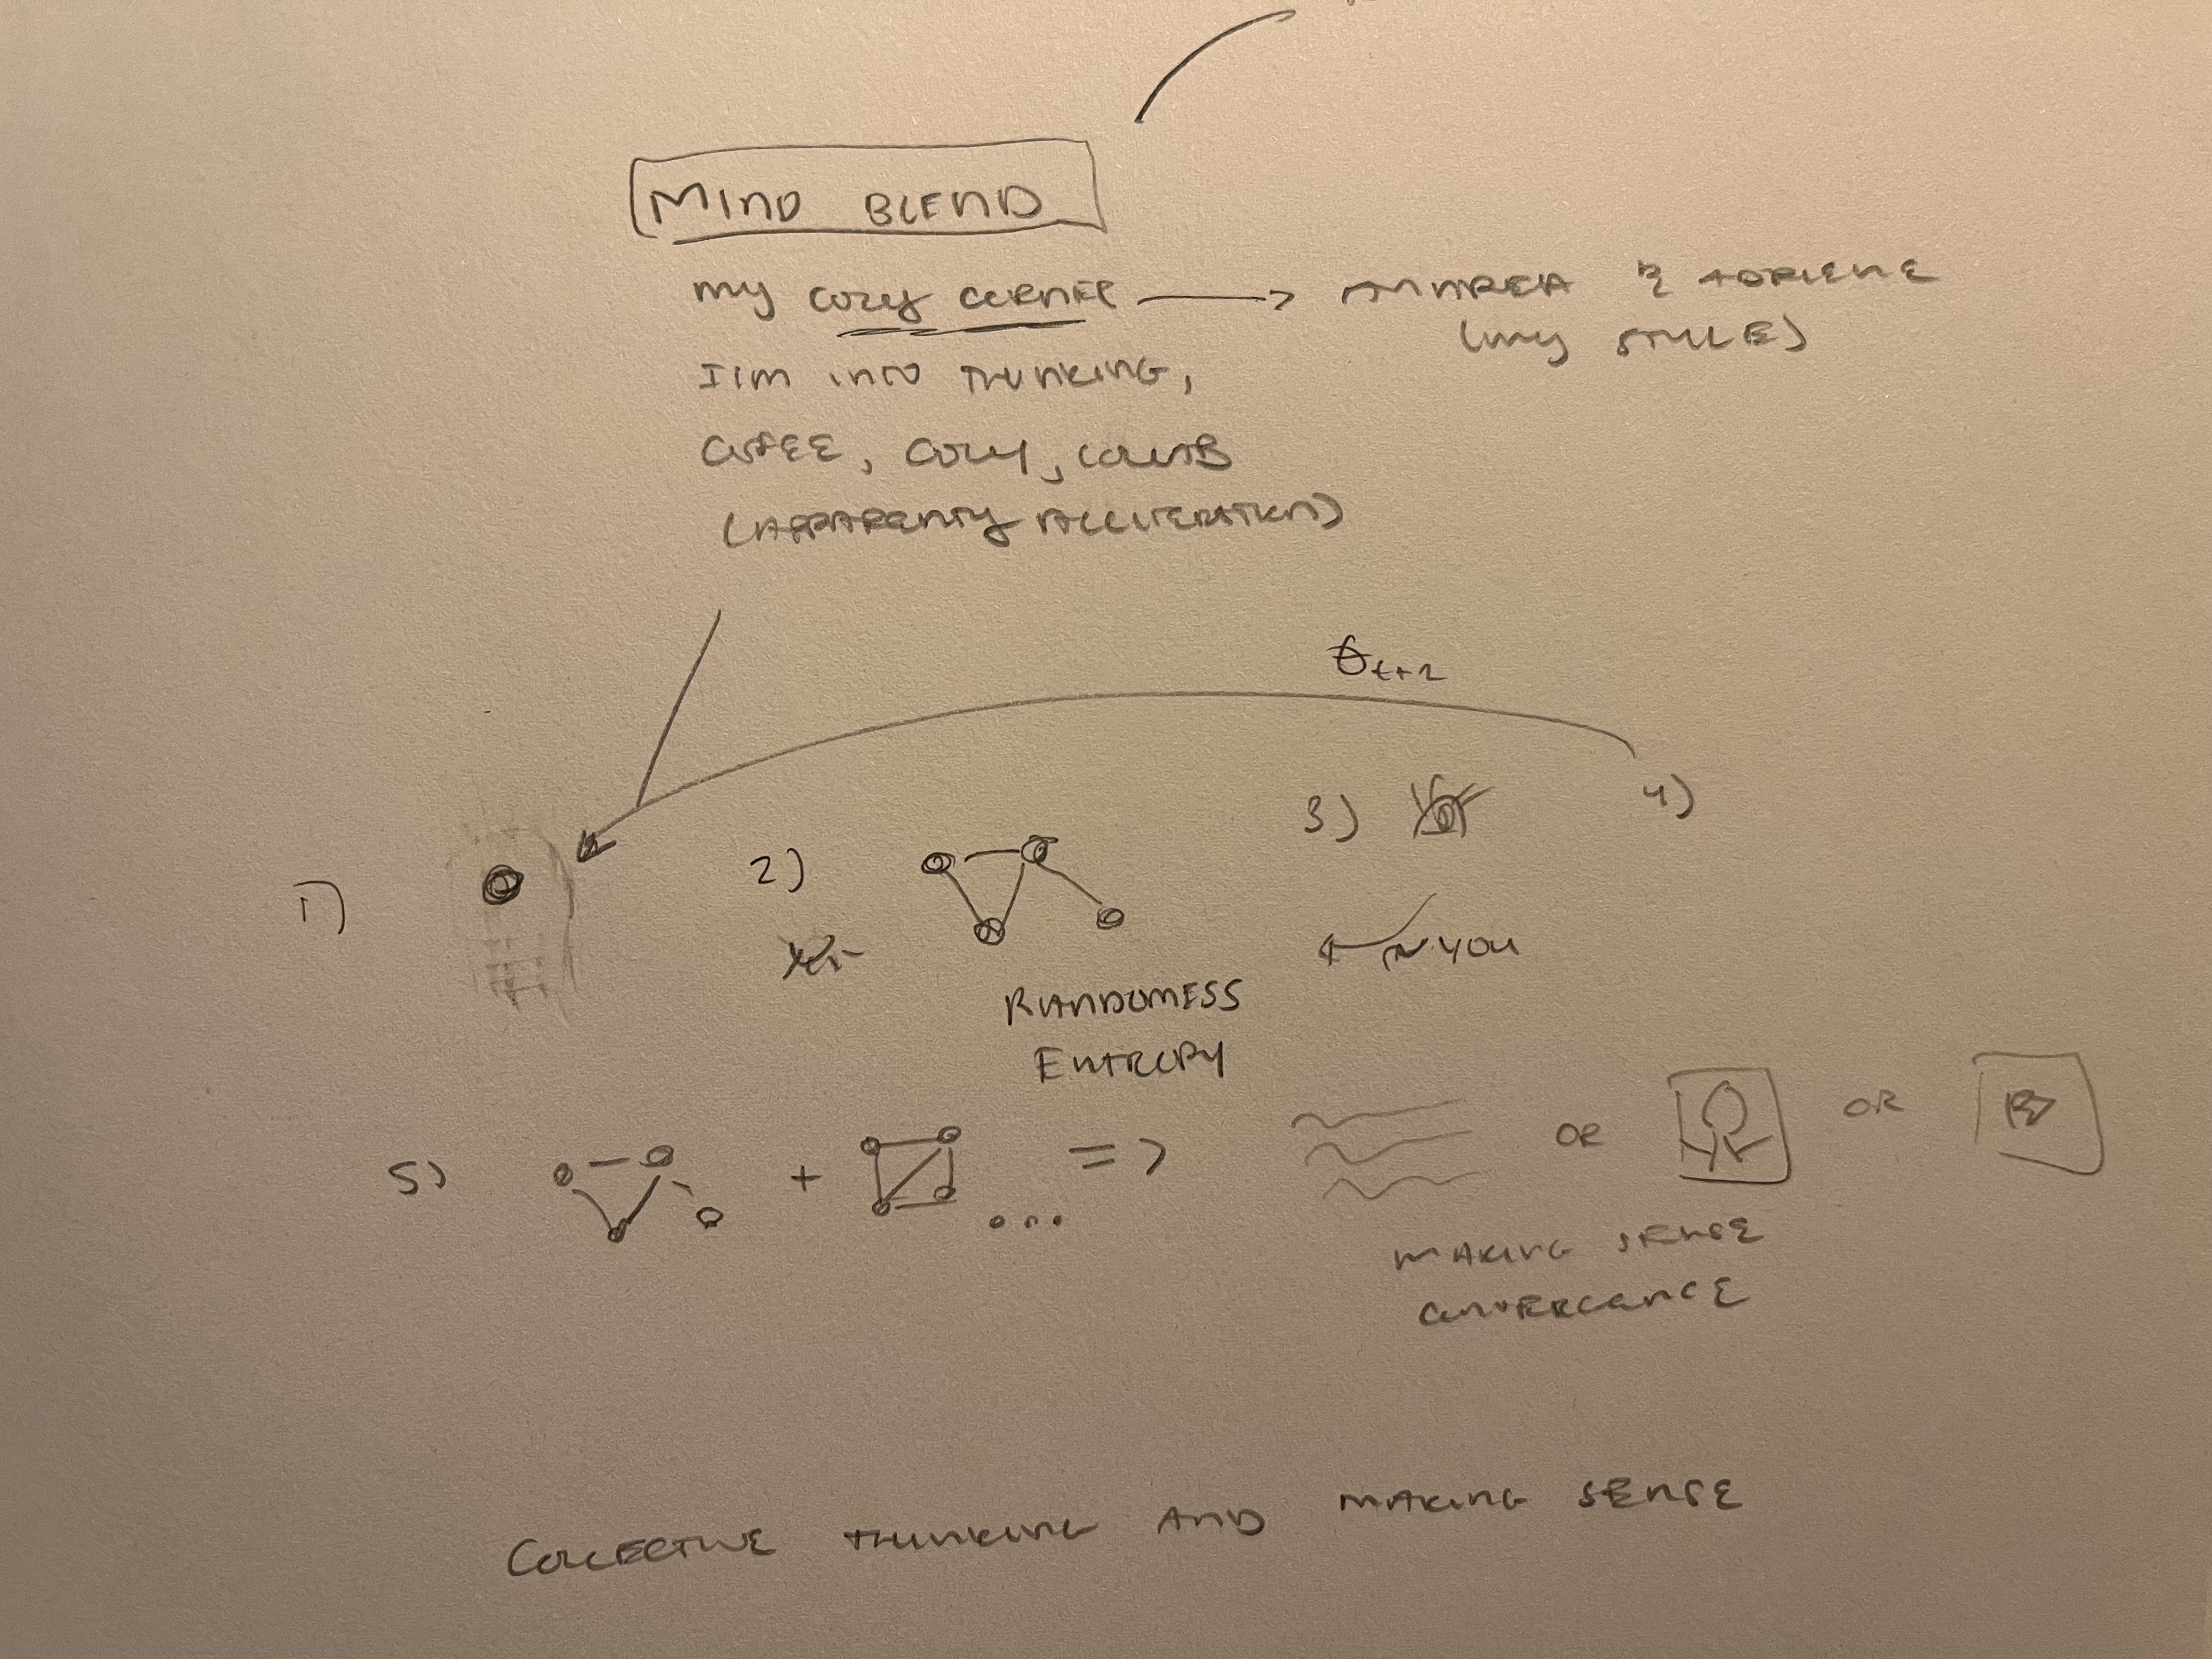 MIND BLEND
my cozy corner → & ADRIENNE
(my STYLE)
I'm into THINKING,
COZY,
(APPARENTLY ALLITERATION)
θt+2
1)
2)
3)
4)
YOU
RANDOMNESS
ENTROPY
5) + ... => OR OR
MAKING SENSE
CONVERGENCE
COLLECTIVE THINKING AND MAKING SENSE